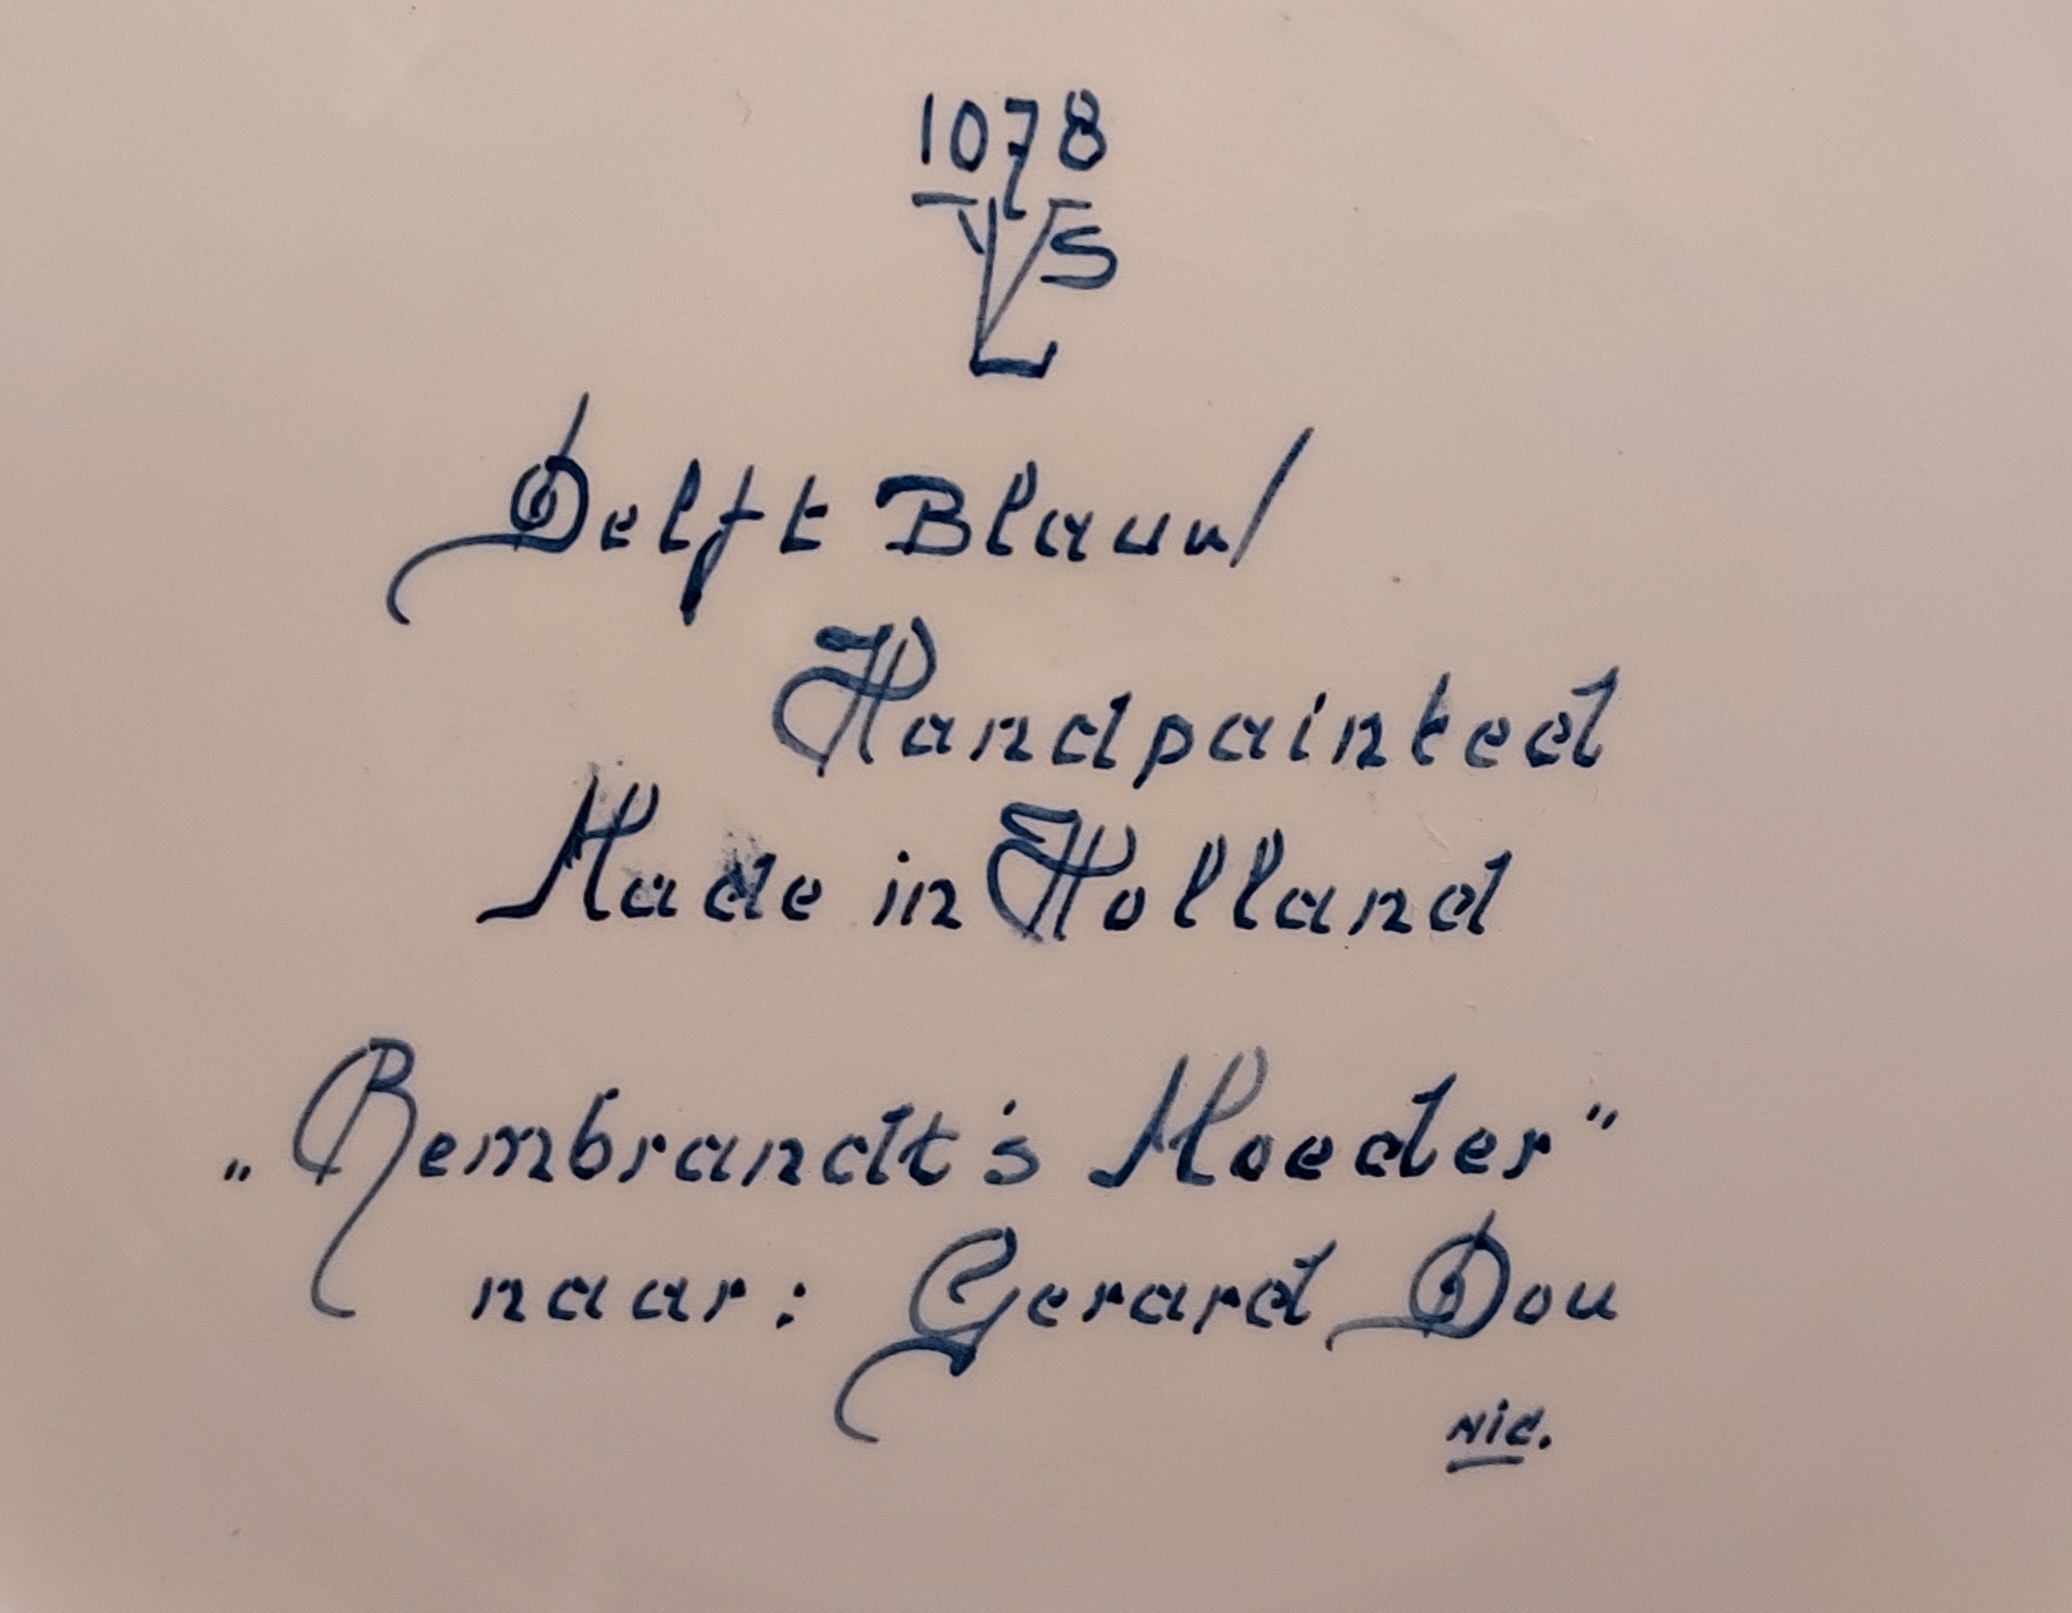 1078
VLS
Delft Blauw
Handpainted
Made in Holland
„Rembrandt's Moeder"
naar: Gerard Dou
Nic.